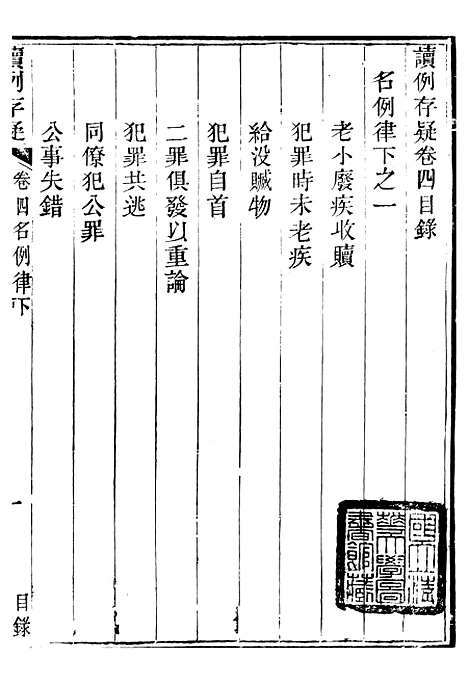 讀例存疑卷四目錄
名例律下之一
老小廢疾收贖
犯罪時未老疾
給沒贓物
犯罪自首
二罪俱發以重論
犯罪共逃
同僚犯公罪
公事失錯
讀例存疑
卷四名例律下
一
目錄